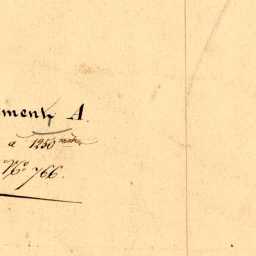 ment A.
a 1250
No. 766.